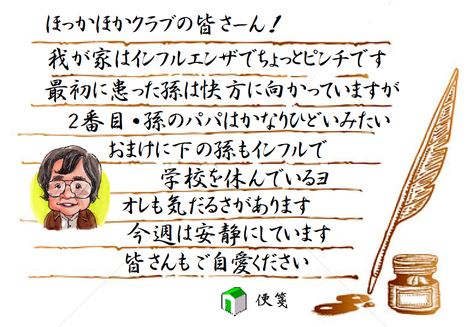 ほっかほかクラブの皆さーん！
我が家はインフルエンザでちょっとピンチです
最初に患った孫は快方に向かっていますが
２番目・孫のパパはかなりひどいみたい
おまけに下の孫もインフルで
学校を休んでいるヨ
オレも気だるさがあります
今週は安静にしています
皆さんもご自愛ください
便箋